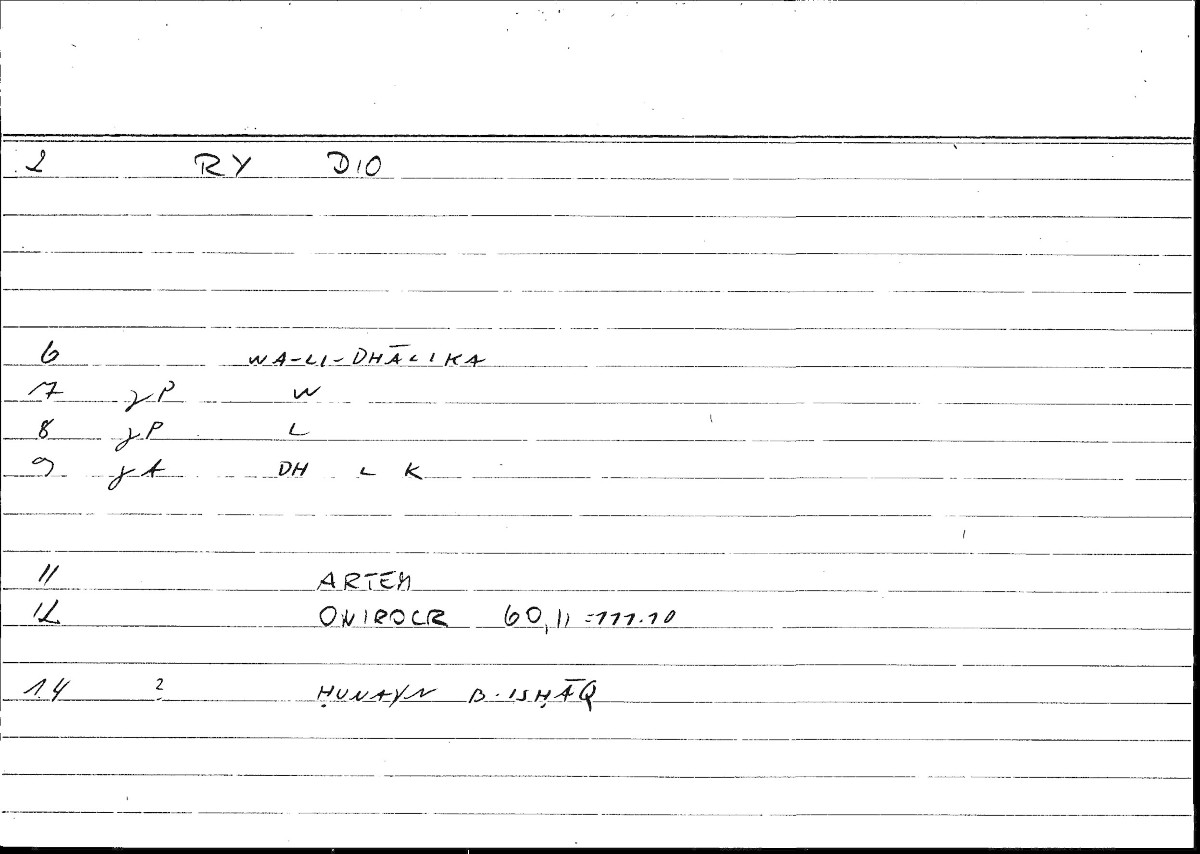 2 RY DIO
6 WA-LI-DHĀLIKA
7 γP W
8 γP L
9 γA DH L K
11 ARTEM
12 ONIROCR 60,11 =111.10
14 ? ḤUNAYN B.ISḤĀQ